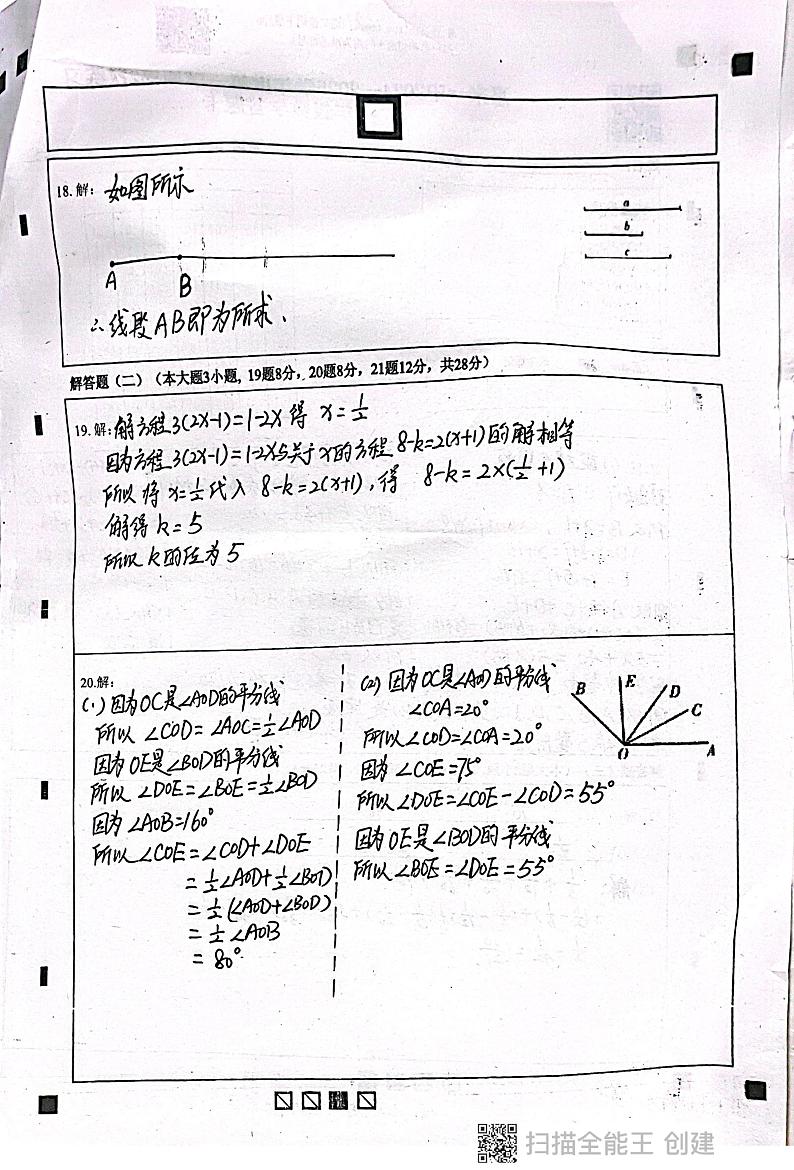 18. 解: 如图所示
a
b
c
A B
∴线段AB即为所求.
解答题（二）（本大题3小题, 19题8分，20题8分，21题12分，共28分）
19. 解: 解方程3(2x-1)=1-2x 得 x=1/2
因为方程3(2x-1)=1-2x与关于x的方程8-k=2(x+1)的解相等
所以将x=1/2代入 8-k=2(x+1), 得 8-k=2×(1/2+1)
解得k=5
所以k的值为5
20.解:
(1) 因为OC是∠AOD的平分线
所以 ∠COD=∠AOC=1/2∠AOD
因为OE是∠BOD的平分线
所以 ∠DOE=∠BOE=1/2∠BOD
因为∠AOB=160°
所以∠COE=∠COD+∠DOE
=1/2∠AOD+1/2∠BOD
=1/2(∠AOD+∠BOD)
=1/2∠AOB
=80°
(2) 因为OC是∠AOD的平分线
∠COA=20°
所以∠COD=∠COA=20°
因为∠COE=75°
所以∠DOE=∠COE-∠COD=55°
因为OE是∠BOD的平分线
所以∠BOE=∠DOE=55°
B E D C
O A
扫描全能王 创建